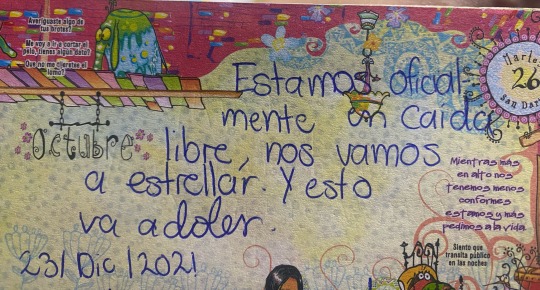 Averiguaste algo de
tus brotes?
Me voy a ir a cortar el
pelo, tienes algun dato?
Que no me tijeretee el
lomo!
Estamos oficial
mente en caida
libre, nos vamos
a estrellar. Y esto
va a doler.
23/Dic/2021
Octubre
Martes
26
San Dar
Mientras más
en alto nos
tenemos menos
conformes
estamos y más
pedimos a la vida
Siento que
transita público
en las noches